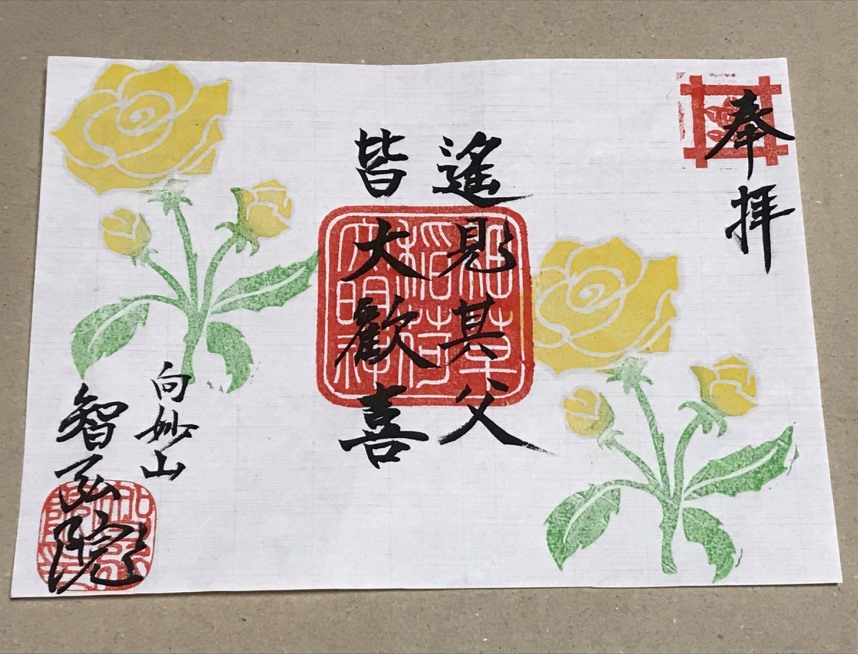 奉拝
遙見其父
皆大歡喜
向妙山
智弘院